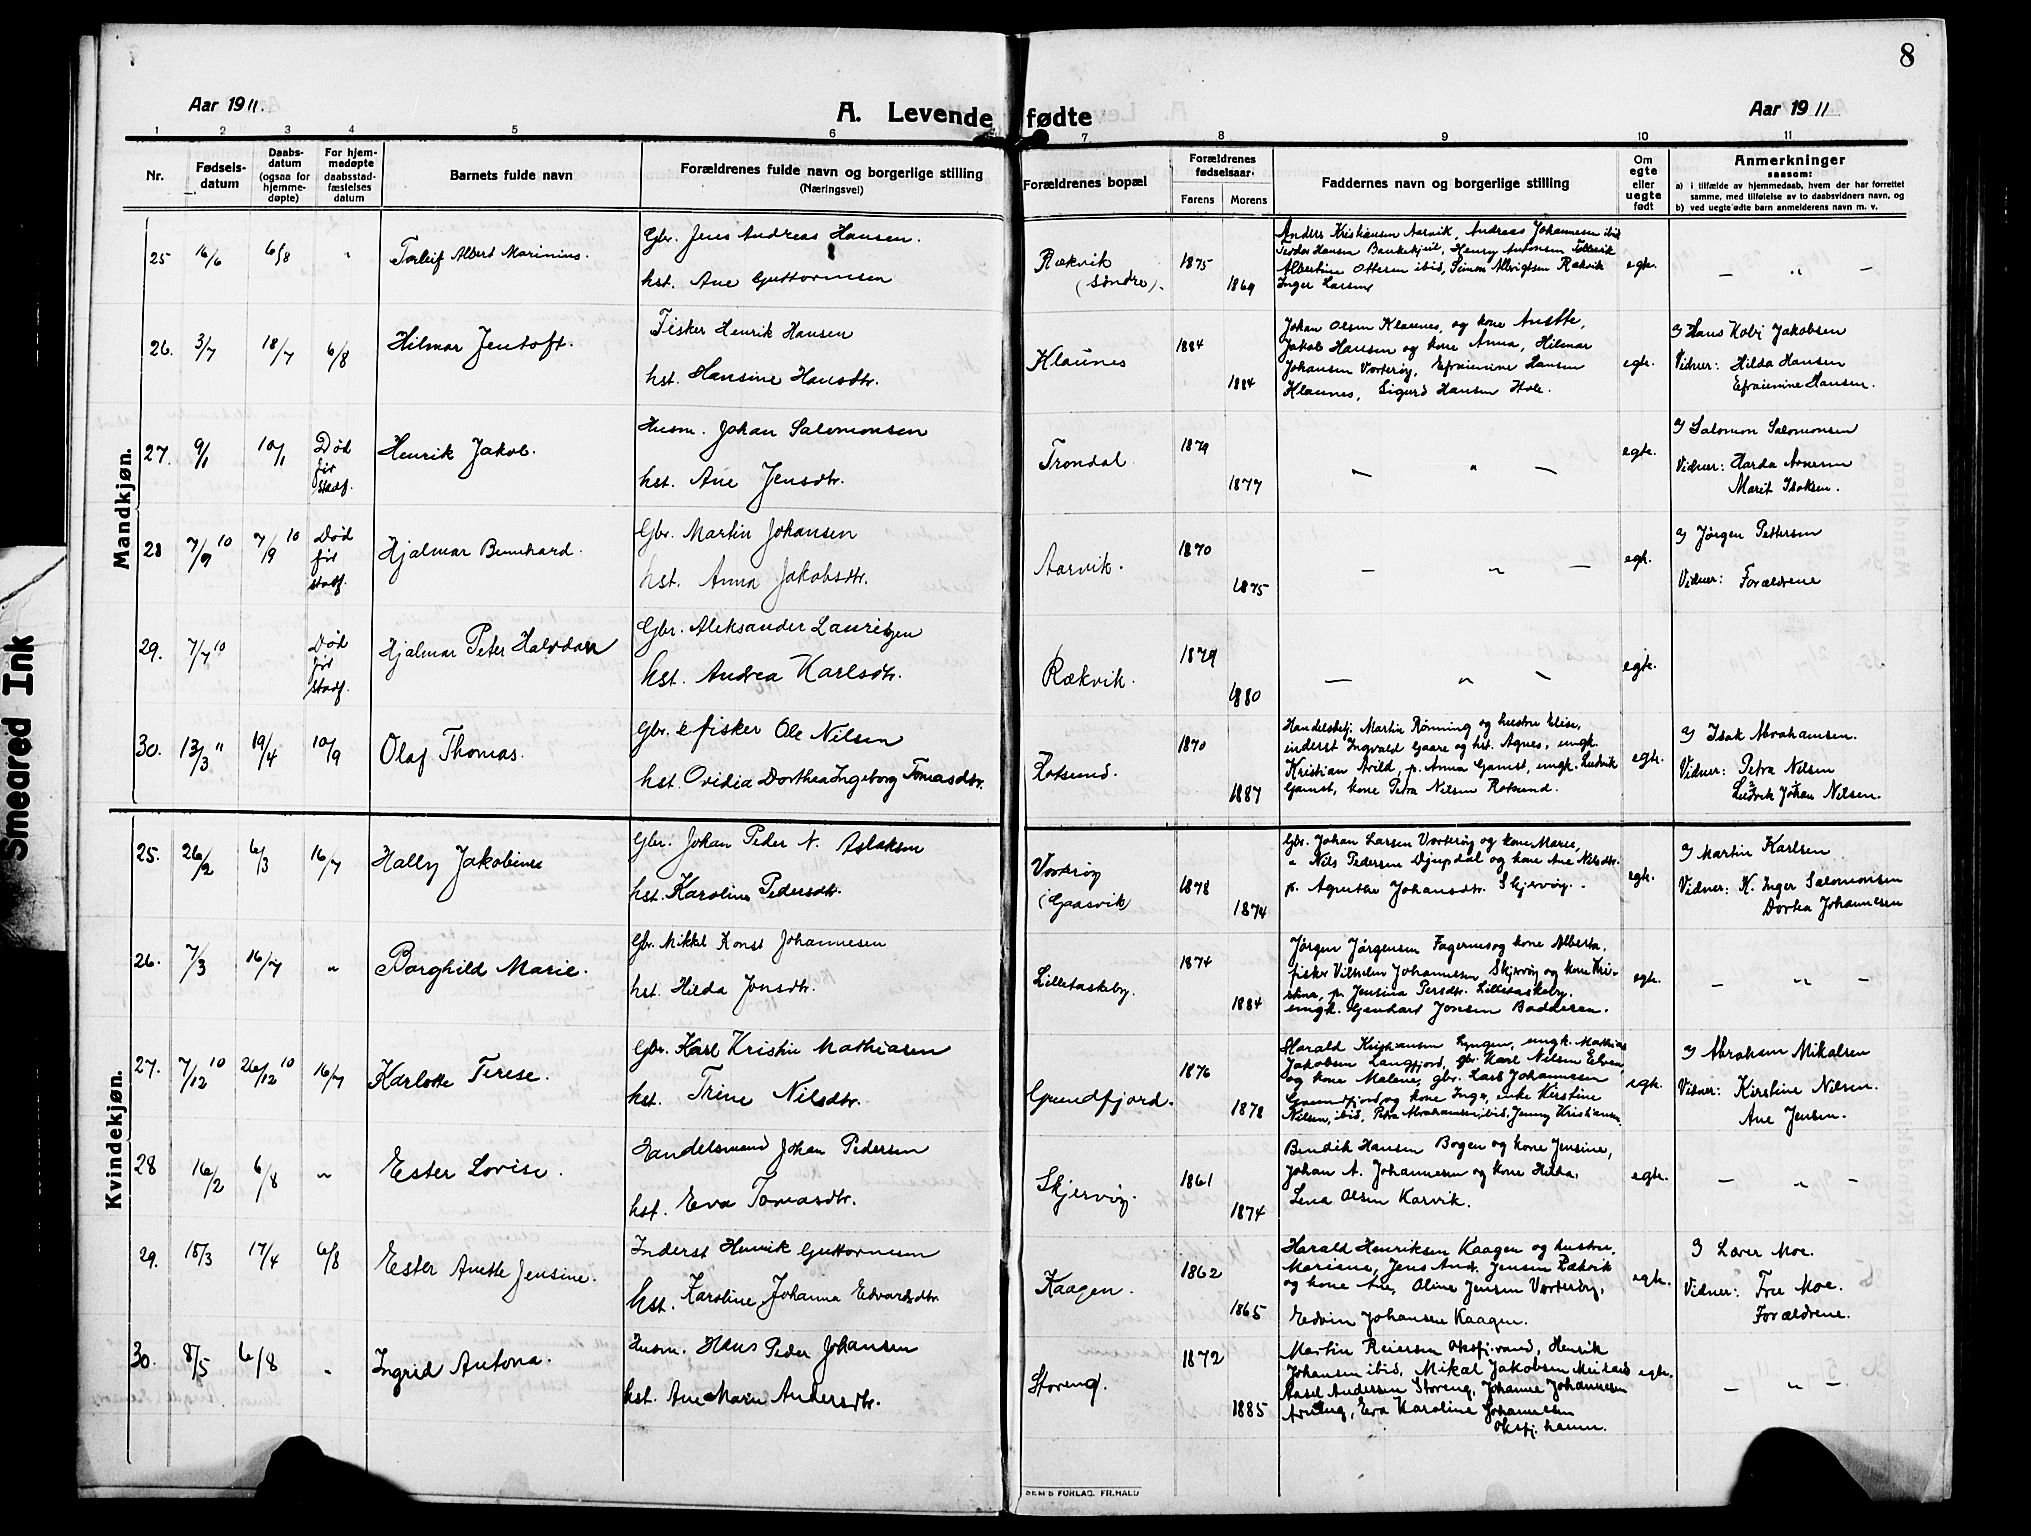 8
Aar 1911.
A. Levende fødte
Aar 1911
1 2 3 4 5 6 7 8 9 10 11
Nr.
Fødsels-
datum
Daabs-
datum
(ogsaa for
hjemme-
døpte)
For hjem-
medøpte
daabsstad-
fæstelses
datum
Barnets fulde navn
Forældrenes fulde navn og borgerlige stilling
(Næringsvei)
Forældrenes bopæl
Forældrenes
fødselsaar
Farens Morens
Faddernes navn og borgerlige stilling
Om
egte
eller
uegte
født
Anmerkninger
saasom:
a) i tilfælde av hjemmedaab, hvem der har forrettet
samme, med tilføielse av to daabsvidners navn, og
b) ved uegte fødte barn anmelderens navn m. v.
Mandkjøn.
25 16/6 6/8 " Torleif Albert Marinius.
Gbr. Jens Andreas Hansen.
hst. Ane Guttormsen
Rækvik
(søndre).
1875
1869
Anders Kristiansen Aarvik, Andreas Johannesen ibid
Teodor Hansen Henry Antonsen
Albertine Ottesen ibid, Simon Rækvik
Inger Larsen
egte.
— " —
26. 3/7 18/7 6/8 Hilmar Jentoft.
Fisker Henrik Hansen
hst. Hansine Hansdtr.
Klaunes
1884
1884
Johan Olsen Klaunes, og kone Anette,
Jakob Hansen og kone Anna, Hilmar
Johansen Vorterøy, Efraienine Hansen
Klaunes, Sigurd Hansen Hole.
egte.
Hans Kobi Jakobsen
Vidner: Hilda Hansen
Efraienine Hansen.
27. 9/1 10/1 Død
før
stadf.
Henrik Jakob.
Husm. Johan Salomonsen
hst. Ane Jensdtr.
Trondal.
1879
1877
— " —
egte.
Salomon Salomonsen
Vidner: Harda Arnesen
Marit Isaksen.
28 7/9 10 7/9 10 Død
før
stadf.
Hjalmar Bernhard.
Gbr. Martin Johansen
hst. Anna Jakobsdtr.
Aarvik.
1870
1875
— " —
egte.
Jørgen Pettersen
Vidner: Forældrene
29. 7/7 10 Død
før
stadf.
Hjalmar Peter Halvdan
Gbr. Aleksander Lauritzen
hst. Andrea Karlsdtr.
Rækvik.
1879
1880
— " —
egte.
30. 13/3 " 19/4 10/9 Olaf Thomas.
Gbr. & fisker Ole Nilsen
hst. Ovidia Dorthea Ingeborg Tomasdtr.
Rotsund.
1870
1887
Handelsbetj. Martin Rønning og hustru Elise,
inderst Ingvald Gaare og hst. Agnes, ungk.
Kristian Arild, p. Anna Gamst, ungk. Ludvik
Gamst, kone Petra Nilsen Rotsund.
egte.
Isak Abrahamsen.
Vidner: Petra Nilsen
Ludvik Johan Nilsen.
Kvindekjøn.
25. 26/2 6/3 16/7 Hally Jakobine
Gbr. Johan Peder N. Aslaksen
hst. Karoline Pedersdtr.
Vorterøy
(Gaasvik)
1878
1874
Gbr. Johan Larsen Vorterøy og kone Marie,
" Nils Pedersen Djupdal og kone Ane Nilsdtr.
p. Agnethe Johansdtr. Skjervøy.
egte.
Martin Karlsen
Vidner: K. Inger Salomonsen
Dortea Johannesen
26. 7/3 16/7 " Borghild Marie.
Gbr. Mikkel Konst Johannesen
hst. Hilda Jonsdtr.
Lilletaskeby.
1874
1884
Jørgen Jørgensen Fagernes og kone Alberta,
fisker Vilhelm Johannesen Skjervøy og kone Kri-
stine, p. Jensina Persdtr. Lilletaskeby.
ungk. Genhart Jonsen Badderen.
egte.
— " —
27. 7/12 10 26/12 10 16/7 Karlotte Terese.
Gbr. Karl Kristin Mathiasen
hst. Trine Nilsdtr.
Grundfjord.
1876
1878
Harald Kristiansen Lyngen, ungk. Mathias
Jakobsen Langfjord, gbr. Karl Nilsen Elven,
og kone Malene, gbr. Lars Johannesen
Grundfjord og kone Inga, enke Kirstine
Nilsen, ibid, Petra Abrahamsen, ibid, Jenny Kristiansen
egte.
Abraham Mikalsen
Vidner: Kirstine Nilsen.
Ane Jensen.
28 16/2 6/8 " Ester Lovise.
Handelsmand Johan Pedersen
hst. Eva Tomasdtr.
Skjervøy.
1861
1874
Bendik Hansen Bogen og kone Jensine,
Johan A. Johannesen og kone Hilda.
Lena Olsen Karvik.
egte.
— " —
29. 15/3 17/4 6/8 Ester Anette Jensine.
Inderst Henrik Guttormsen
hst. Karoline Johanna Edvardsdtr.
Kaagen.
1862
1865
Harald Henriksen Kaagen og hustru
Marisne, Jens And. Jensen Rækvik
og kone Ane, Oline Jensen Vorterøy,
Edvin Johansen Kaagen.
egte.
Lærer Moe.
Vidner: Fru Moe.
Forældrene.
30. 8/5 6/8 " Ingrid Antona.
Husm. Hans Peder Johansen
hst. Ane Marie Andersdtr.
Storeng.
1872
1885
Martin Reiersen Oksfj.vand, Henrik
Johansen ibid, Mikal Jakobsen
Andersen Storeng, Johanne Johannesen
Eva Karoline Johannesen
Oksfj. hamn.
egte.
— " —
SEM & FORLAG. FR.HALD
Smeared Ink